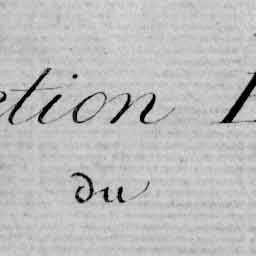 ction
du